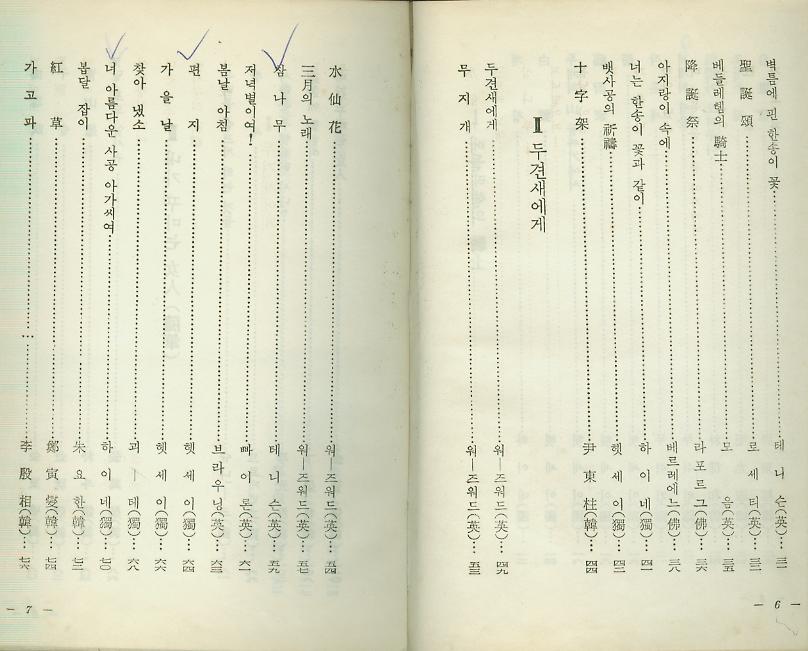 벽틈에 핀 한송이 꽃……테 니 슨(英)…三一
聖 誕 頌……로 세 티(英)…
베들레헴의 騎士……모 음(英)…三五
降 誕 祭……라포르그(佛)…三六
아지랑이 속에……베르레에느(佛)…三八
너는 한송이 꽃과 같이……하 이 네(獨)…四一
뱃사공의 祈禱……헷 세 이(獨)…四二
十 字 架……尹 東 柱(韓)…四四
Ⅱ 두견새에게
두견새에게……워—즈워드(英)…四九
무 지 개……워—즈워드(英)…五三
— 6 —
水 仙 花……워—즈워드(英)…五四
三月의 노래……워—즈워드(英)…五七
참 나 무……테 니 슨(英)…五九
저녁별이여!……빠 이 론(英)…六一
봄날 아침……브라우닝(英)…六三
편 지……헷 세 이(獨)…六四
가 을 날……헷 세 이(獨)…六六
찾아 냈소……괴 — 테(獨)…六八
너 아름다운 사공 아가씨여……하 이 네(獨)…七〇
봄달 잡이……朱 요 한(韓)…七二
紅 草……鄭 寅 燮(韓)…七四
가 고 파……李 殷 相(韓)…七六
— 7 —